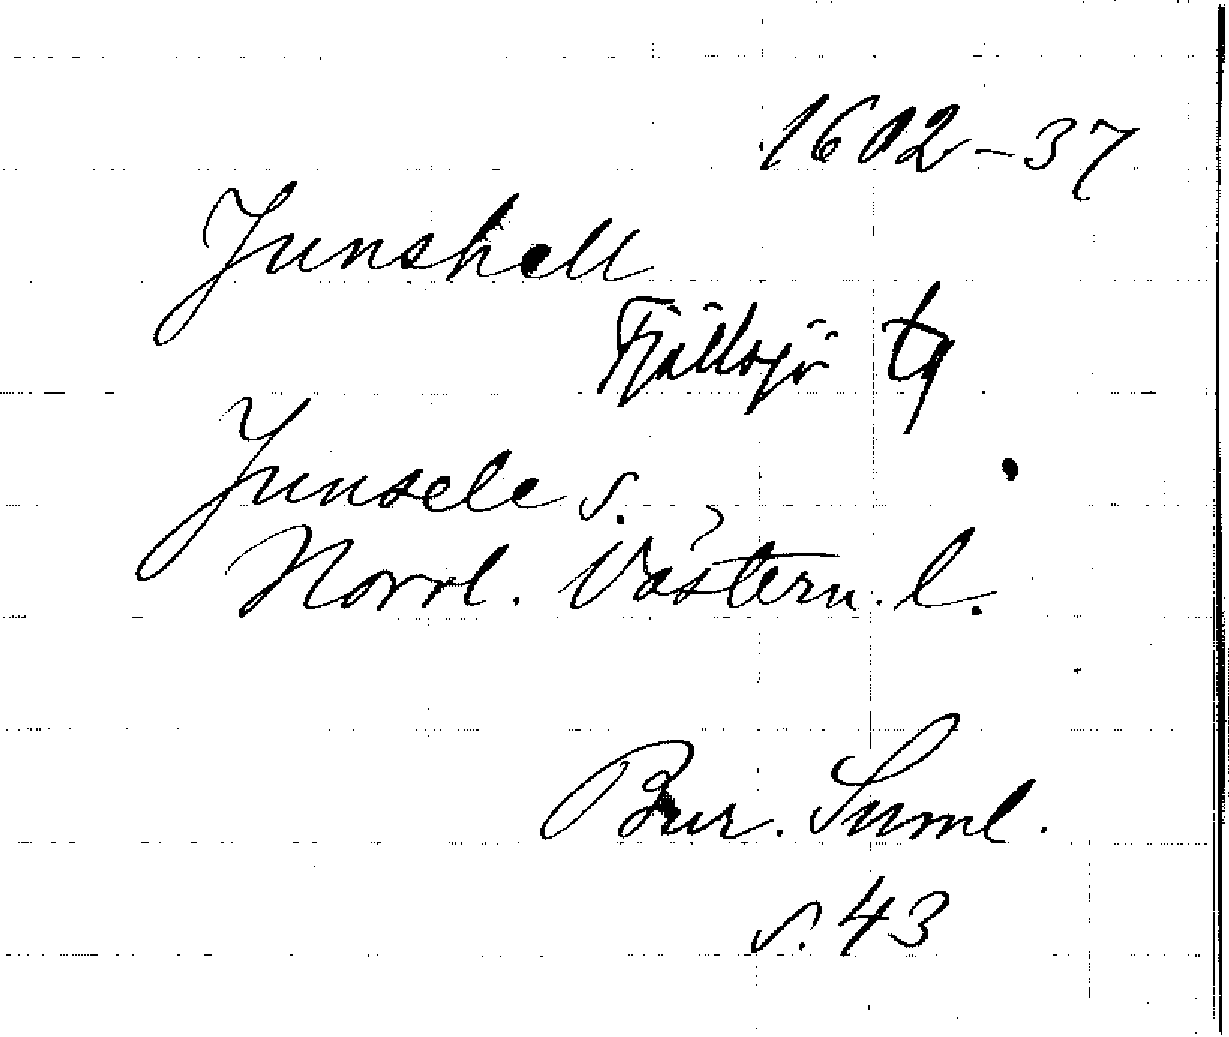 1602-37
Junskell
Fjällsjö tg
Junsele s.
Norrl. Västern. l.
Bur. Suml.
s. 43